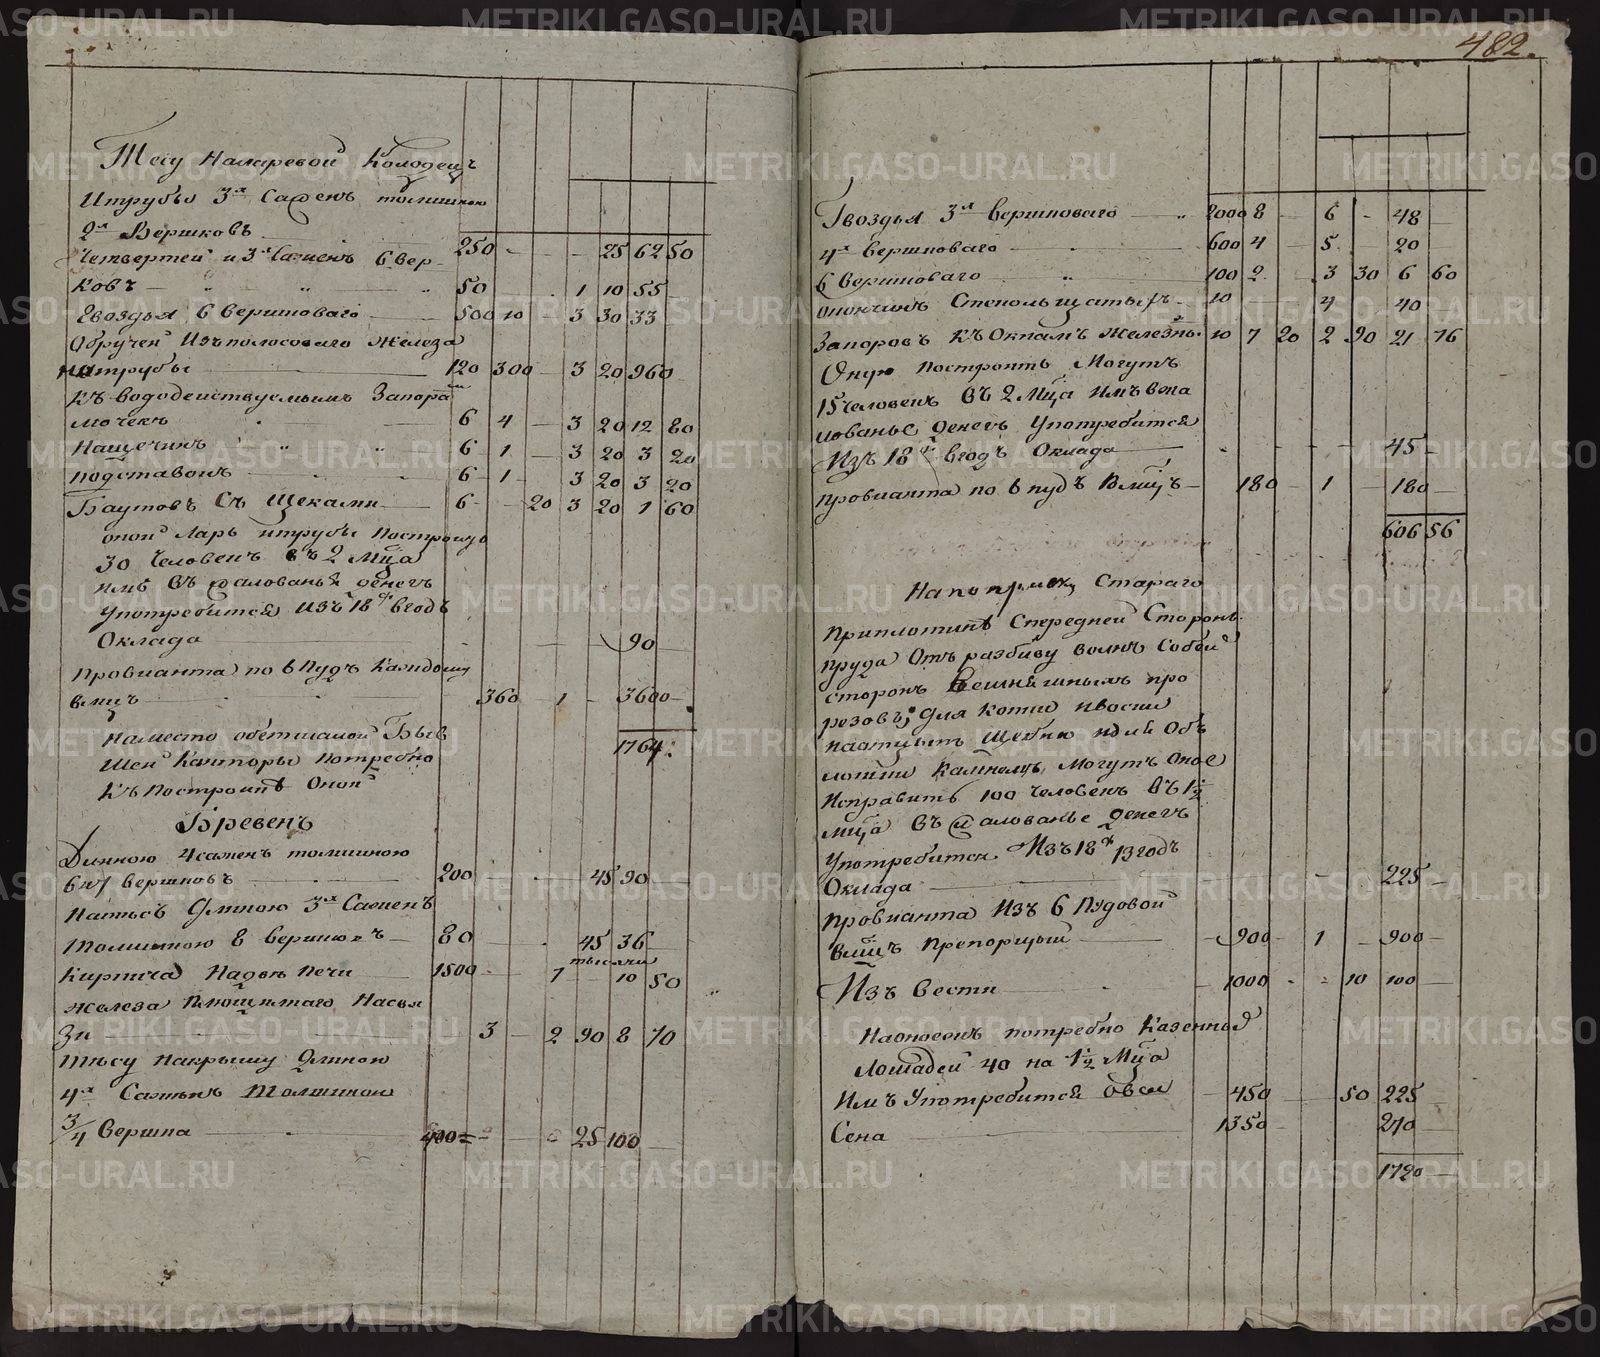 482.
Тесу наларевой колодецъ
итрубы 3х Саженъ толщиною
2х Вершковъ 250 - - - 25 62 50
Четвертей и 3х Саженъ 6 Вер
ковъ 50 1 10 55
Гвоздья 6 Вершковаго 500 10 - 3 30 33
Обручей Изъ полосоваго железа
натрубы 120 300 - 3 20 960
Къ вододействуемымъ Запора
мочекъ 6 4 - 3 20 12 80
Нащечинъ 6 1 - 3 20 3 20
подставокъ 6 1 - 3 20 3 20
Баутовъ Съ Щеками 6 - 20 3 20 1 60
оной Ларь итрубы построитъ
30 Человекъ въ 2 Мца
имъ Въ жалованья денегъ
употребится изъ 18 вгодъ
Оклада 90
Провианта по 6 Пудъ Каждому
вмцъ 360 1 - 3600
Наместо обетшалой Быв
шей Канторы потребно 1764
Къ Построике Оной
Бревенъ
Длиною 4 сажень толщиною
6 и 7 вершковъ 200 45 90
Матьсъ Длиною 3х Саженъ
Толщиною 8 вершковъ 80 45 36
тысячи
Кирпича На две Печи 1500 7 10 50
железа Площенаго Насвя
Зи 3 - 2 90 8 70
Тесу Накрышу Длиною
4х Саженъ Толщиною
3/4 Вершка 400 25 100
Гвоздья 3х вершковаго 2000 8 - 6 - 48
4х вершковаго 600 4 - 5 20
6 Вершковаго 100 2 3 30 6 60
окончинъ Стекольщатыхъ 10 4 40
Запоровъ Къ Окнамъ железны 10 7 20 2 90 21 76
Оную построить Могутъ
15 человекъ Въ 2 Мца Имъ вжа
лованье денегъ Употребится
Изъ 18 вгодъ Оклада 45
провианта по 6 пудъ Вмцъ 180 1 180
606 56
На поправку Стараго
Приплотине Спередней Стороне
пруда Отъ разбиву волнъ Собеи
сторонъ Вешнишнымъ про
резовъ; Для котши
щебню или Объ
камнемъ, Могутъ Оное
Исправить 100 человекъ Въ 1 1/2
мца Въ жалованье денегъ
Употребится Изъ 18 в годъ
Оклада 225
провианта Изъ 6 Пудовой
вмцъ препорции 900 1 900
Изъ вести 1000 10 100
потребно Казенныя
Лошадей 40 на 1 1/2 Мца
Имъ Употребится Овса 450 50 225
Сена 1350 270
1720
METRIKI.GASO-URAL.RU